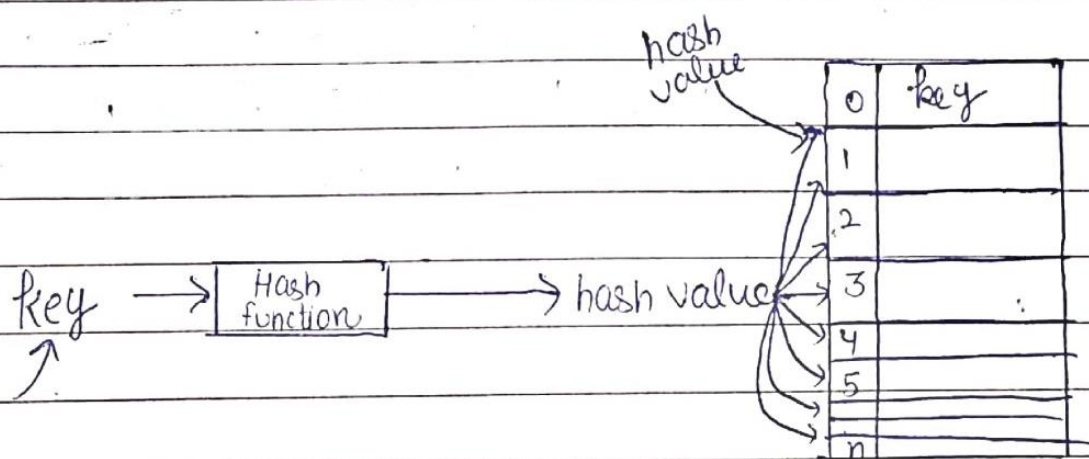 hash
value
0 key
1
2
key
Hash
function
hash value
3
4
5
n